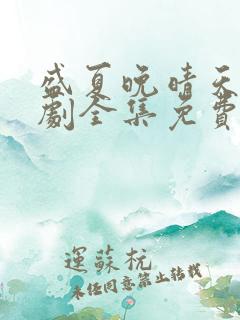 盛夏晚晴天
劇全集免費
運蘇杭
未经同意禁止转载